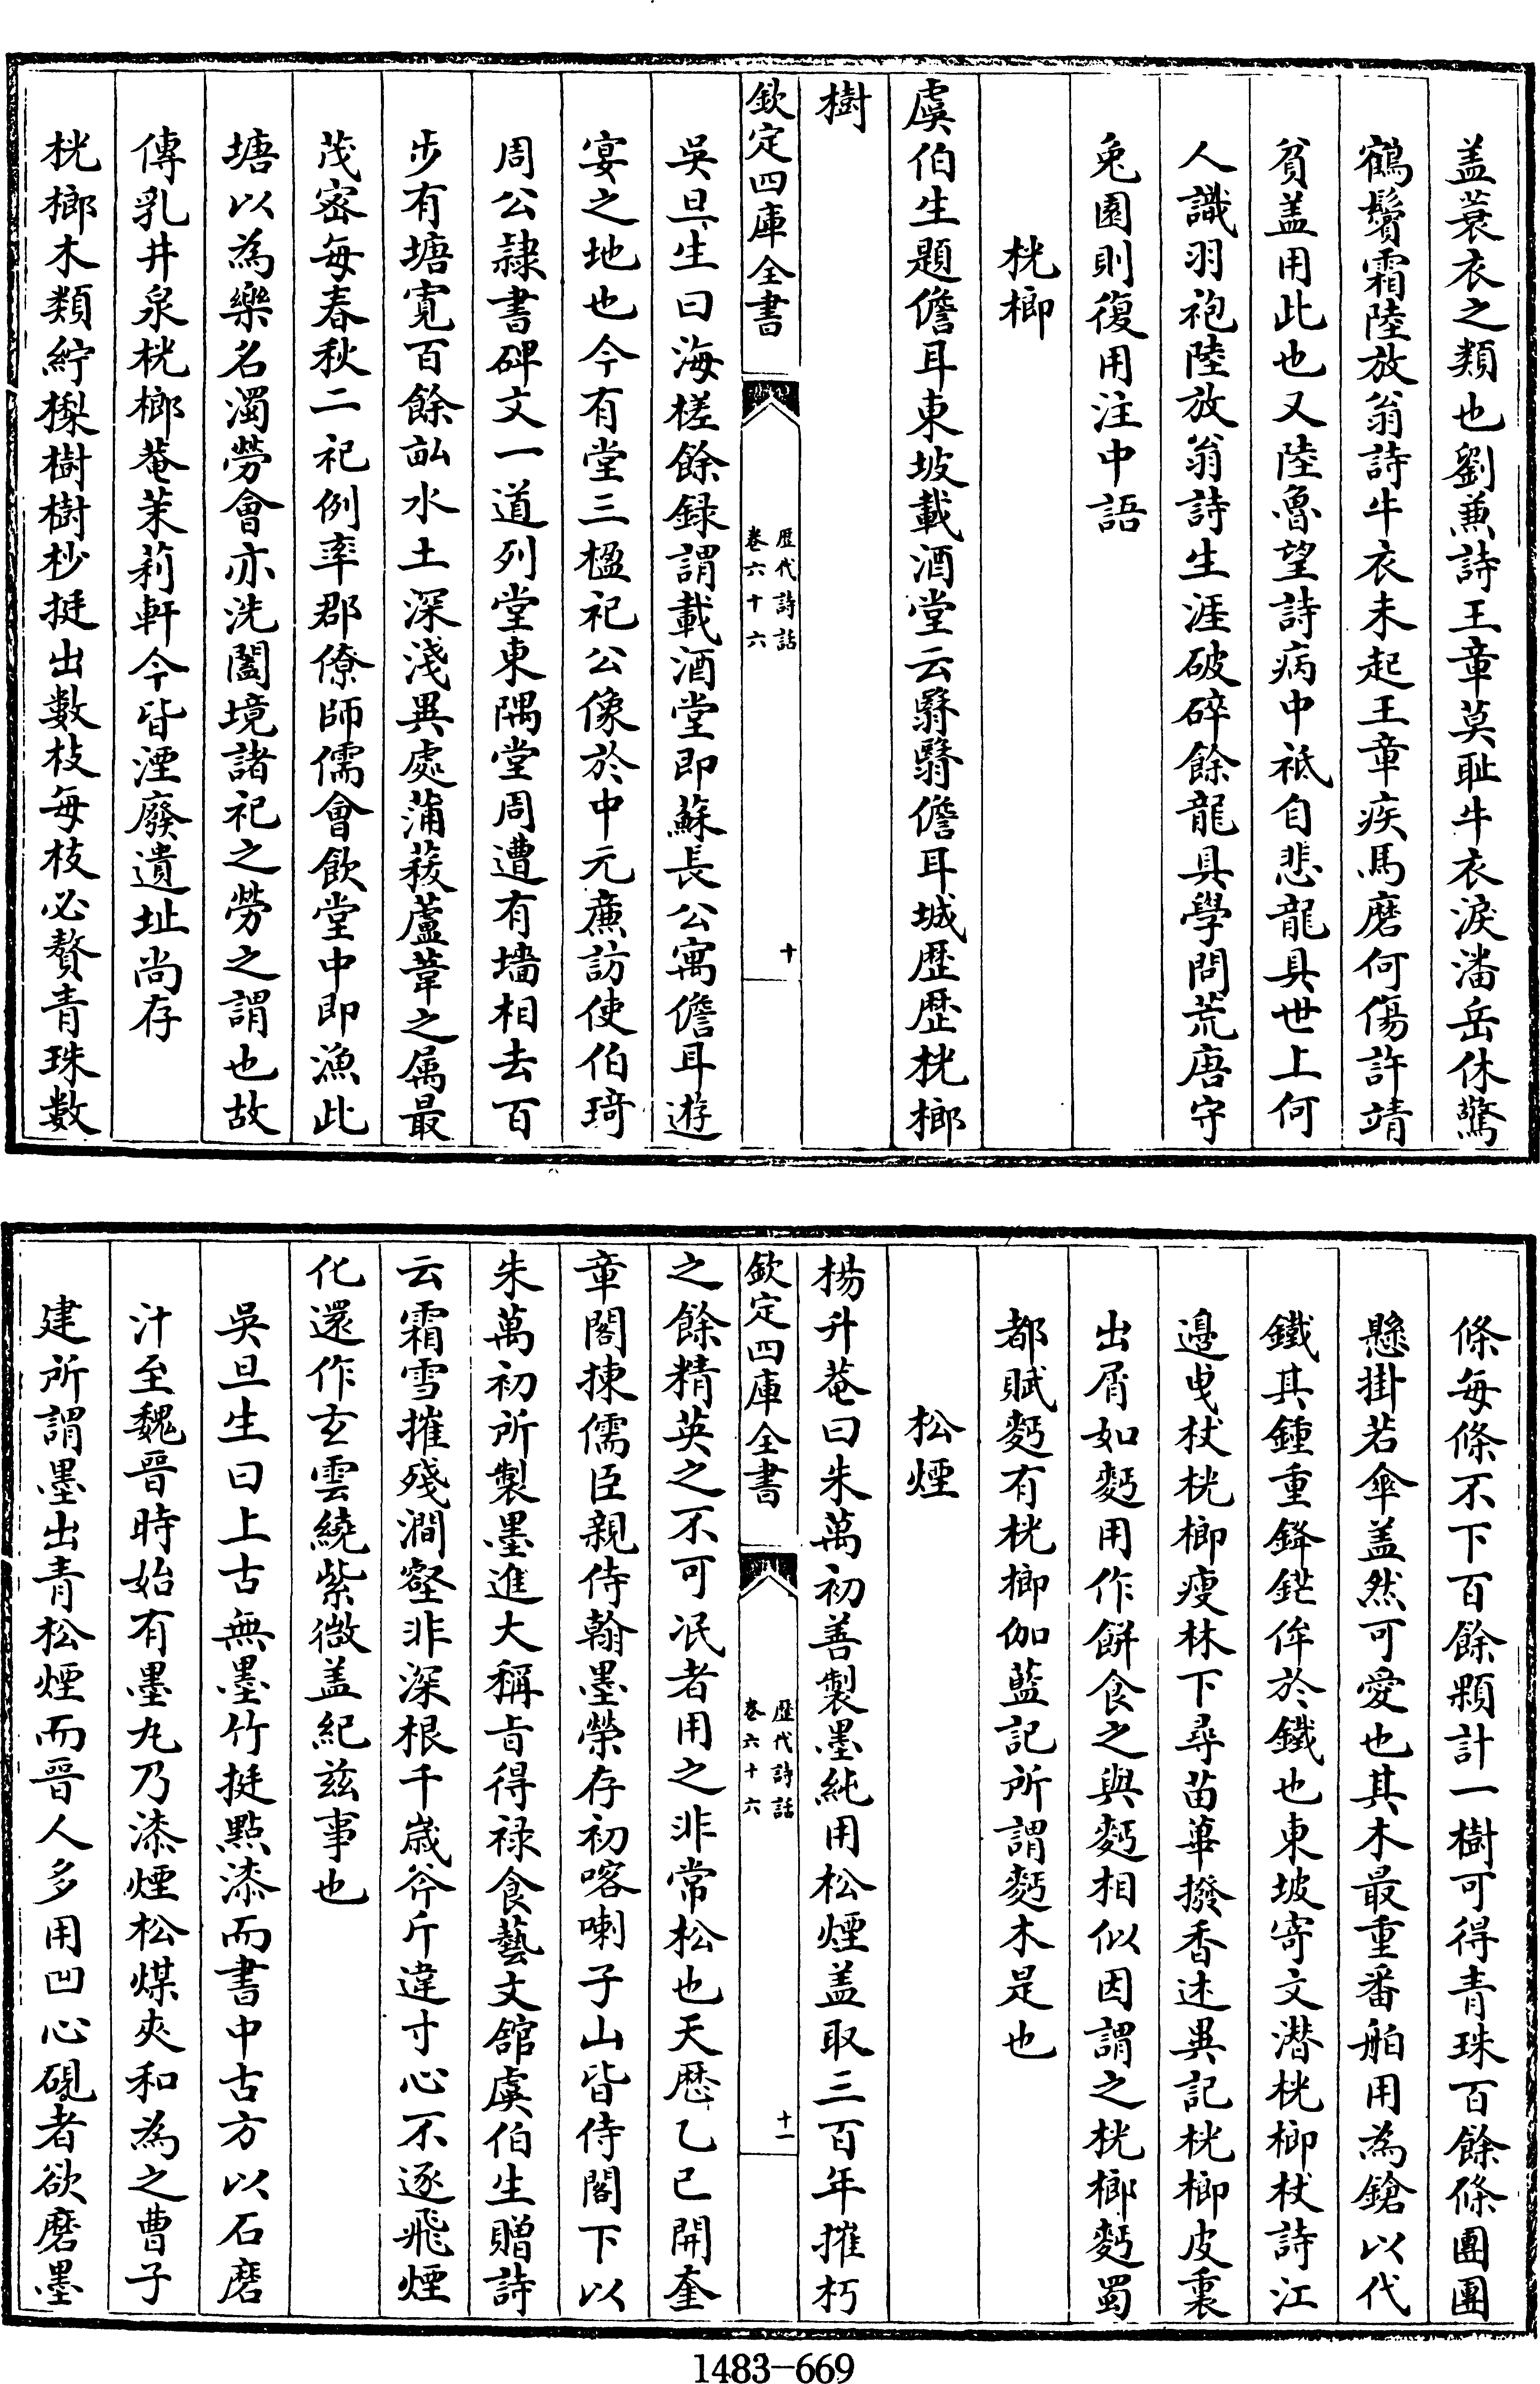 盖蓑衣之類也劉兼詩王章莫耻牛衣淚潘岳休驚
鶴鬢霜陸放翁詩牛衣未起王章疾馬磨何傷許靖
貧盖用此也又陸魯望詩病中祗自悲龍具世上何
人識羽袍陸放翁詩生涯破碎餘龍具學問荒唐守
兔園則復用注中語
桄榔
虞伯生題儋耳東坡載酒堂云翳翳儋耳城歴歴桄榔
樹
欽定四庫全書
歴代詩話
卷六十六
十
吳旦生曰海槎餘録謂載酒堂即蘇長公寓儋耳遊
宴之地也今有堂三楹祀公像於中元廉訪使伯琦
周公隷書碑文一道列堂東隅堂周遭有墻相去百
步有塘寛百餘畆水土深淺異處蒲菽蘆葦之属最
茂宻每春秋二祀例率郡僚師儒會飲堂中即漁此
塘以為樂名濁勞會亦洗闔境諸祀之勞之謂也故
傳乳井泉桄榔菴茉莉軒今皆湮廢遺址尚存
桄榔木類紵㯶樹樹杪挺出數枝每枝必贅青珠數
條每條不下百餘顆計一樹可得青珠百餘條團團
懸掛若傘盖然可愛也其木最重番舶用為鎗以代
鐵其鍾重鋒鋩侔於鐵也東坡寄文潜桄榔杖詩江
邉曳杖桄榔瘦林下尋苗蓽撥香述異記桄榔皮裏
出屑如麫用作餅食之與麫相似因謂之桄榔麫蜀
都賦麫有桄榔伽藍記所謂麫木是也
松煙
楊升菴曰朱萬初善製墨純用松煙盖取三百年摧朽
欽定四庫全書
歴代詩話
卷六十六
十一
之餘精英之不可泯者用之非常松也天厯乙已開奎
章閣揀儒臣親侍翰墨榮存初喀喇子山皆侍閣下以
朱萬初所製墨進大稱㫖得禄食藝文舘虞伯生贈詩
云霜雪摧殘澗壑非深根千嵗斧斤違寸心不逐飛煙
化還作玄雲繞紫微盖紀兹事也
吳旦生曰上古無墨竹挺點漆而書中古方以石磨
汁至魏晉時始有墨丸乃漆煙松煤夾和為之曹子
建所謂墨出青松煙而晉人多用凹心硯者欲磨墨
1483-669